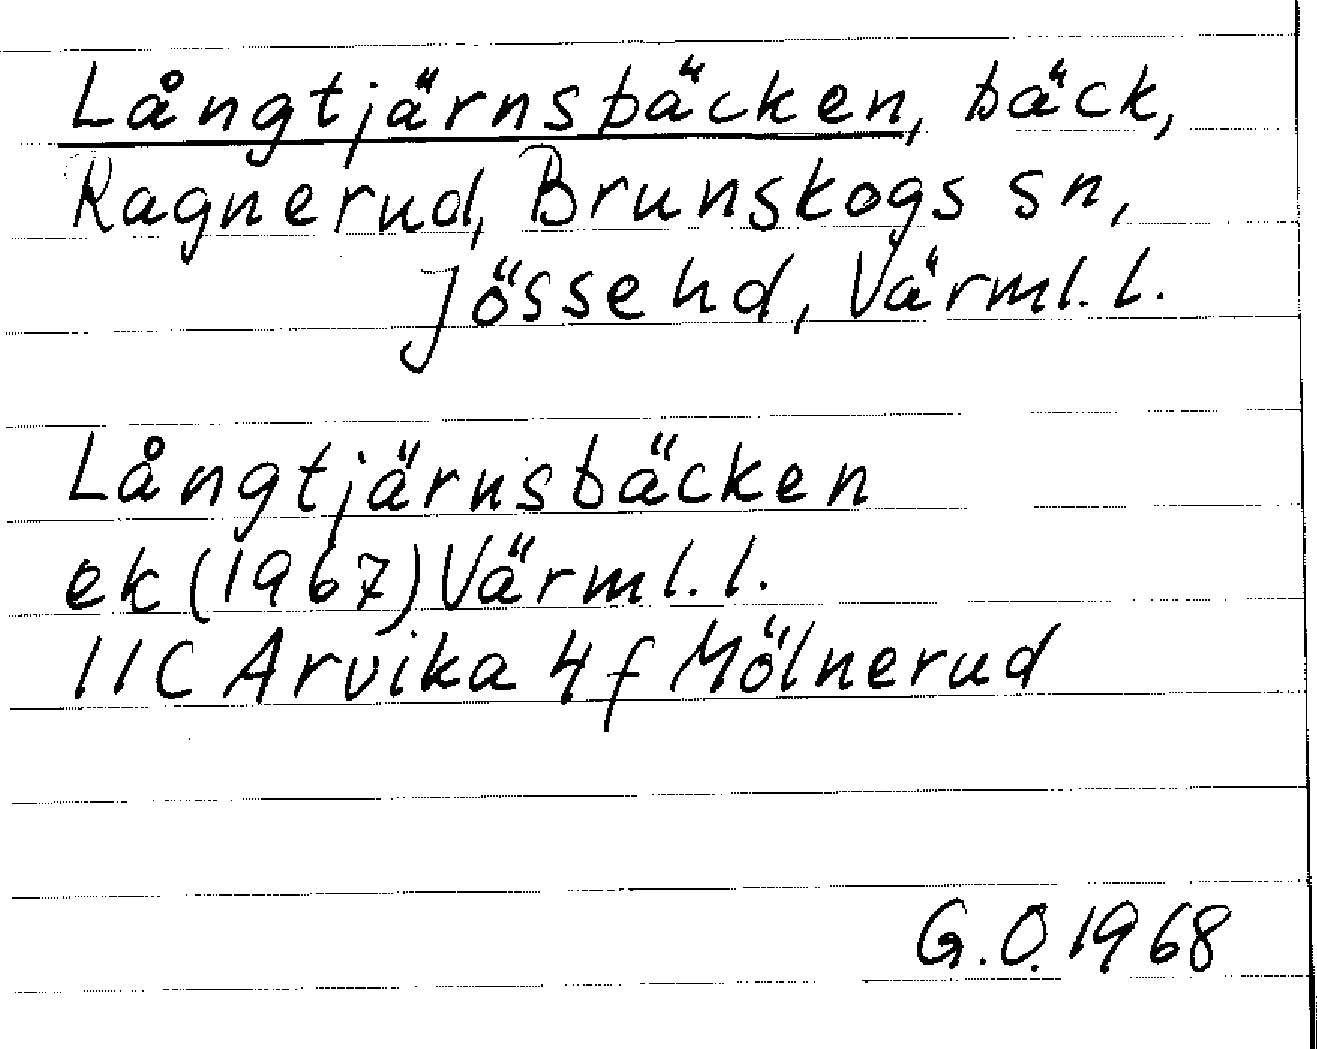 Långtjärnsbäcken, bäck,
Ragnerud, Brunskogs sn,
Jösse hd, Värml. l.
Långtjärnsbäcken
ek (1967) Värml. l.
11C Arvika 4f Mölnerud
G.O. 1968